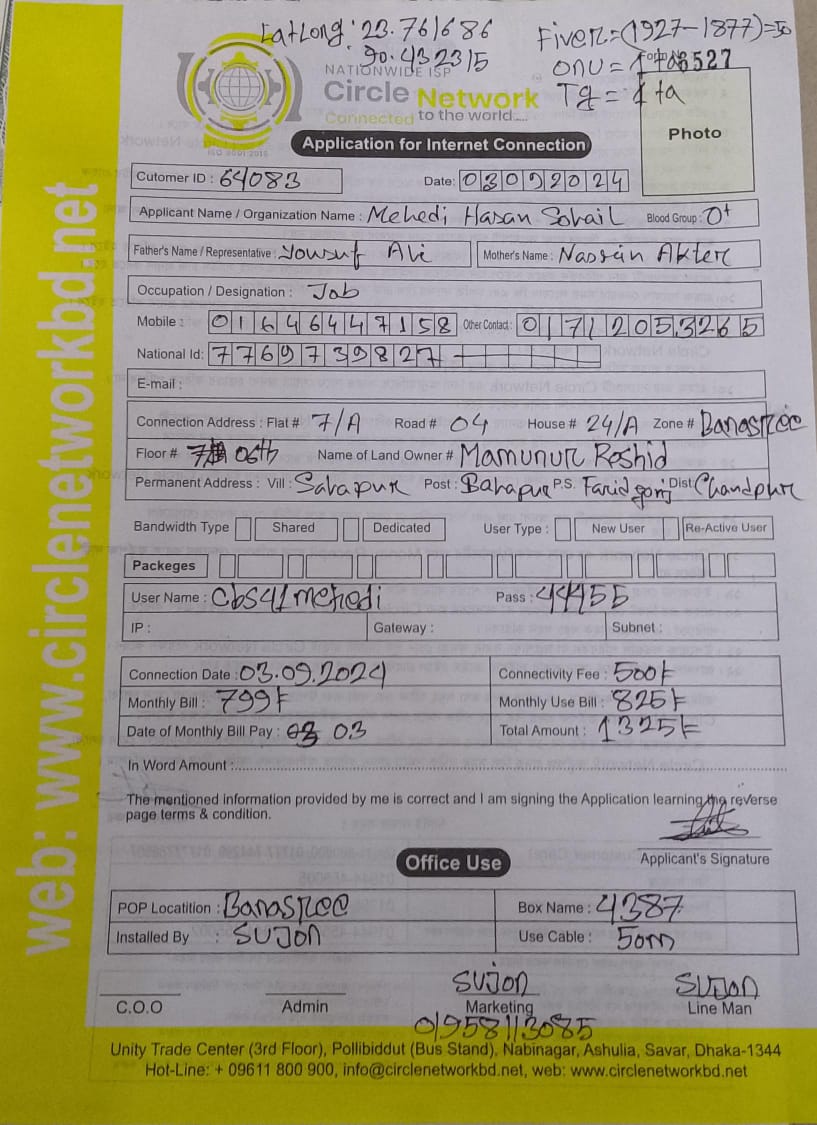 LatLong: 23.761686
90.432315
Fiver=(1927-1877)=50
onu=
Tg=
NATIONWIDE ISP
Circle Network
Connected to the world....
ISO 9001:2015
Photo
Application for Internet Connection
Cutomer ID : 64083 Date: 03092024
Applicant Name / Organization Name : Mehedi Hasan Sohail Blood Group : O+
Father's Name / Representative : Yousuf Ali Mother's Name : Nasrin Akter
Occupation / Designation : Job
Mobile : 01646447158 Other Contact : 01712053265
National Id: 7769739827
E-mail :
Connection Address : Flat # 7/A Road # 04 House # 24/A Zone # Banasree
Floor # 06th Name of Land Owner # Mamunur Roshid
Permanent Address : Vill : Post : P.S. Faridgonj Dist Chandpur
Bandwidth Type Shared Dedicated User Type : New User Re-Active User
Packeges
User Name : Cbs41mehedi Pass : 44455
IP : Gateway : Subnet :
Connection Date : 03.09.2024 Connectivity Fee : 500৳
Monthly Bill : 799৳ Monthly Use Bill : 825৳
Date of Monthly Bill Pay : 03 Total Amount : 1325৳
In Word Amount :
The mentioned information provided by me is correct and I am signing the Application learning the reverse
page terms & condition.
Applicant's Signature
Office Use
POP Locatition : Banasree Box Name : 4387
Installed By : SUJON Use Cable : 50m
SUJON SUJON
C.O.O Admin Marketing Line Man
01958113085
Unity Trade Center (3rd Floor), Pollibiddut (Bus Stand), Nabinagar, Ashulia, Savar, Dhaka-1344
Hot-Line: + 09611 800 900, info@circlenetworkbd.net, web: www.circlenetworkbd.net
web: www.circlenetworkbd.net